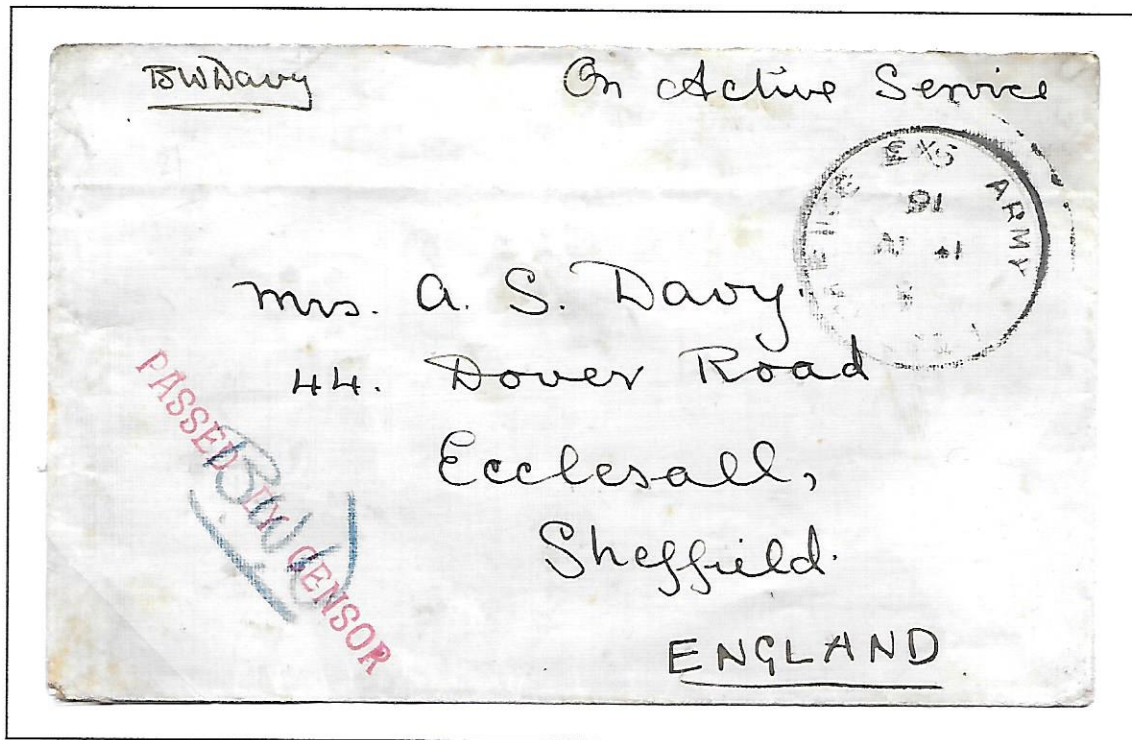 BWDavy On Active Service
EXS ARMY
16
Mrs. A. S. Davy.
44. Dover Road
Ecclesall,
Sheffield.
ENGLAND
PASSED BY CENSOR
BWD